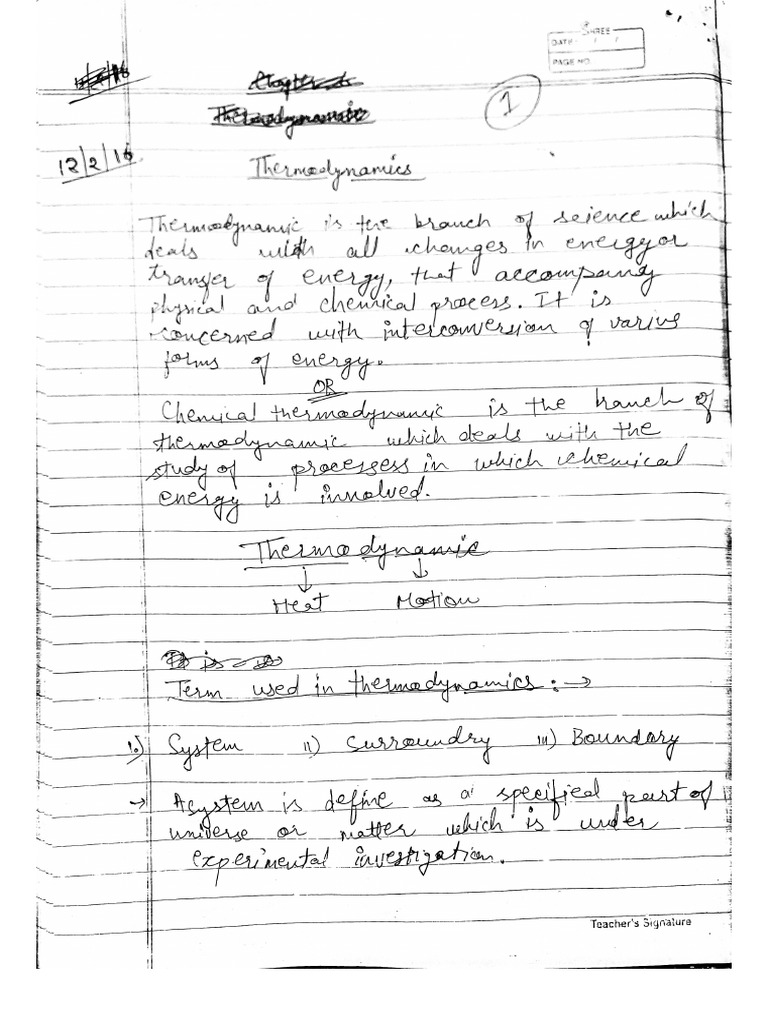 SHREE
DATE: / /
PAGE NO.
1
12/2/16
Thermodynamics
Thermodynamic is the branch of science which
deals with all changes in energy or
transfer of energy, that accompany
physical and chemical process. It is
concerned with interconversion of varius
forms of energy.
OR
Chemical thermodynamic is the branch of
thermodynamic which deals with the
study of processess in which chemical
energy is involved.
Thermodynamic
↓ ↓
Heat Motion
Term used in thermodynamics :→
1.) System II) Surroundry III) Boundary
→ A system is define as a specified part of
universe or matter which is under
experimental investigation.
Teacher's Signature